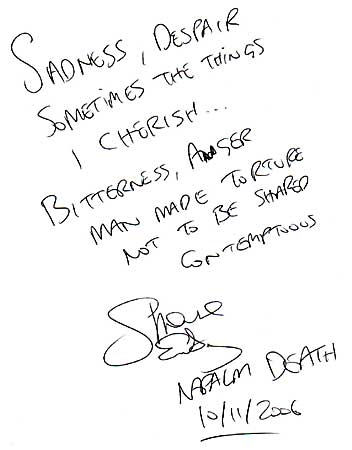 SADNESS, DESPAIR
SOMETIMES THE THINGS
I CHERISH...
BITTERNESS, ANGER
MAN MADE TORTURE
NOT TO BE SHARED
CONTEMPTUOUS
Shane
NAPALM DEATH
10/11/2006